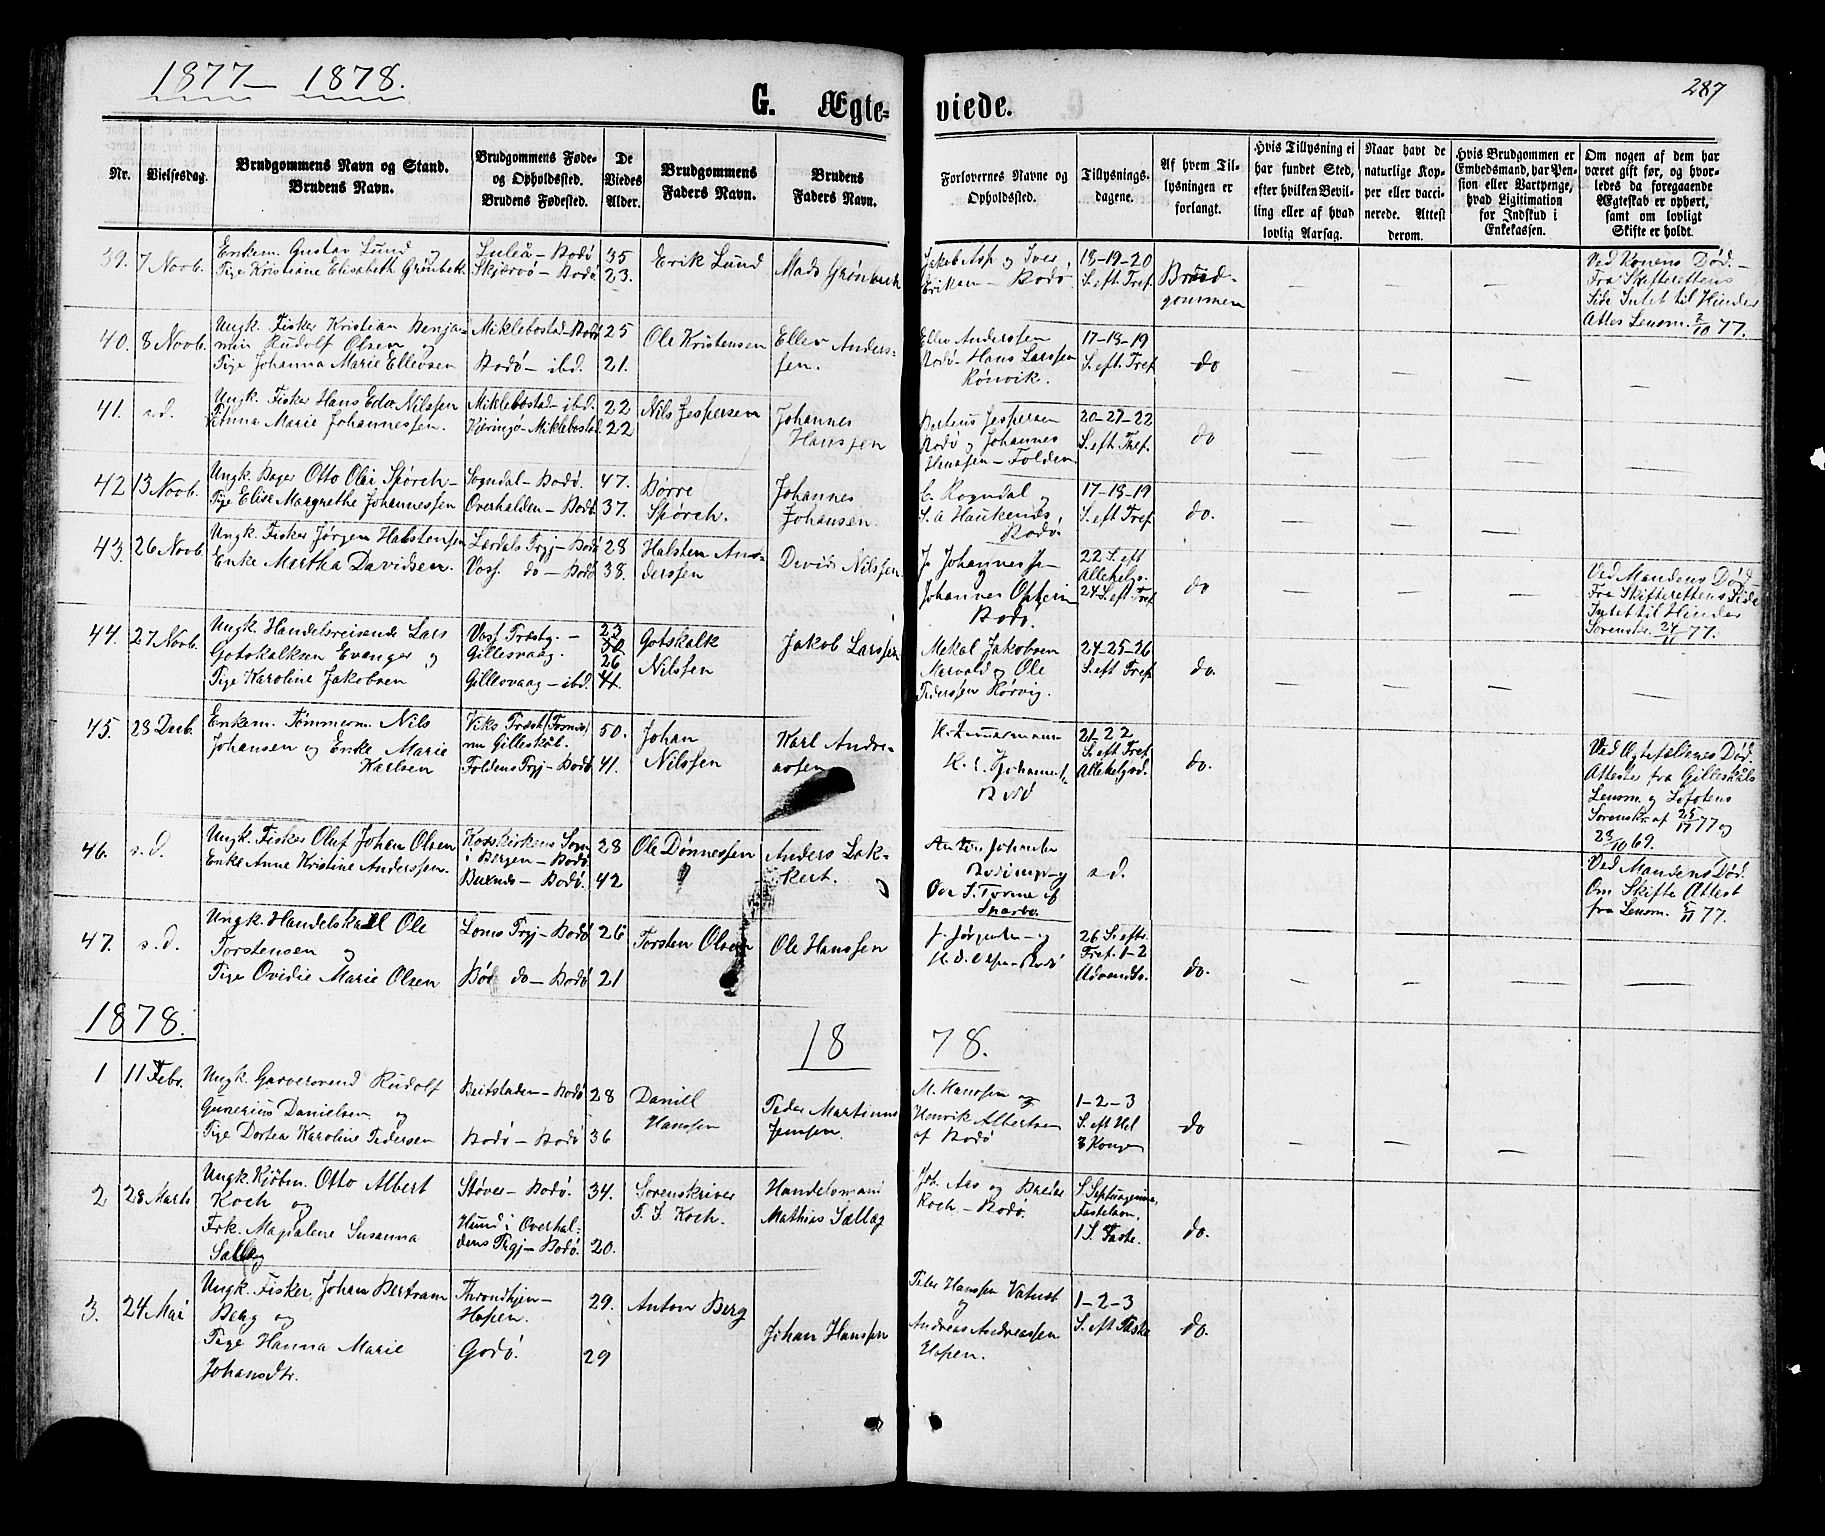 1877 – 1878.
287
G. Ægte-
viede.
Nr.
Vielsesdag.
Brudgommens Navn og Stand.
Brudens Navn.
Brudgommens Føde-
og Opholdssted.
Brudens Fødested.
De
Viedes
Alder.
Brudgommens
Faders Navn.
Brudens
Faders Navn.
Forlovernes Navne og
Opholdssted.
Tillysnings-
dagene.
Af hvem Til-
lysningen er
forlangt.
Hvis Tillysning ei
har fundet Sted,
efter hvilken Bevil-
ling eller af hvad
lovlig Aarsag.
Naar havt de
naturlige Kop-
per eller vacci-
nerede. Attest
derom.
Hvis Brudgommen er
Embedsmand, har Pen-
sion eller Vartpenge,
hvad Legitimation
for Indskud i
Enkekassen.
Om nogen af dem har
været gift før, og hvor-
ledes da foregaaende
Ægteskab er ophørt,
samt om lovligt
Skifte er holdt.
39. 7 Novb.
Enkem. Gustav Lund og
Pige Kristiane Elisabeth Grønbeck
Luleå – Bodø 35
Skjærvø – Bodø 23.
Erik Lund
Mads Grønbeck
Jakob Asp og Iver
Eriksen – Bodø
18-19-20
S. eft. Tref.
Brud-
gommen
Ved Konens Død. –
Fra Skifterettens
Side Intet til Hinder
Attes Lensm. 2/10 77.
40. 8 Novb.
Ungk. Fisker Kristian Benja-
min Rudolf Olsen og
Pige Johanna Marie Ellevsen
Miklebostad – Bodø 25
Bodø – ibd. 21.
Ole Kristensen
Ellev Anders-
sen.
Ellev Anderssen
Bodø – Hans Larssen
Rønvik.
17-18-19
S. eft. Tref
do
41. s.d.
Ungk. Fisker Hans Edv. Nilssen
Pige Anna Marie Johannessen.
Miklebostad – ibd. 22
Kjæringø – Miklebostad 22
Nils Jespersen
Johannes
Hanssen
Berteus Jespersen
Bodø og Johannes
Hanssen – Folden
20-21-22
S. eft. Tref.
do
42 13 Novb.
Ungk. Bager Otto Olai Spørck –
Pige Elise Margrethe Johannessen
Sogndal – Bodø. 47.
Overhalden – Bodø 37.
Børre
Spørck.
Johannes
Johansen.
C. Rogndal og
S. A Haukenæs
Bodø.
17-18-19
S. eft Tref.
do.
43. 26 Novb.
Ungk. Fisker Jørgen Halstensen
Enke Martha Davidsen.
Lærdals Prgj – Bodø 28
Voss do – Bodø 38.
Halsten An-
derssen
David Nilssen.
J. Johannessen
og
Johannes
Bodø.
22 S. eft
Allehelgs.
24 S. eft Tref
do
Ved Mandens Død
Fra Skifterettens Side
Intet til Hinder
Sorenskr. 24/11 77.
44. 27 Novb.
Ungk. Handelsreisende Lars
Gotskalksen Evanger og
Pige Karoline Jakobsen
Voss Præstg. –
Gillesvaag.
Gillesvaag – ibd.
23
50
26
41.
Gotskalk
Nilssen
Jakob Larssen
Mekal Jakobsen
Marvold og Ole
Pederssen Hørvig.
24-25-26
S. eft Tref
do.
45. 28 Decb.
Enkem. Tømmerm. Nils
Johansen og Enke Marie
Karlsen
Viks Præst
Gilleskål.
Foldens Prgj – Bodø
50.
41.
Johan
Nilssen
Karl Andre-
assen
K. Zimmermann
Bodø
21-22
S. eft Tref
Allehelgsd.
do.
Ved Ægtefællenes Død.
Attester fra Gilleskåls
Lensm. og Lofotens
Sorenskr. af 25/11 77 og
23/10 69.
46. s.d.
Ungk. Fisker Oluf Johan Olsen
Enke Anne Kristine Anderssen.
Korskirkens Sogn
i Bergen – Bodø. 28
Buxnes – Bodø. 42
Ole Dønnessen
Anders Lok-
kert.
Bodø
s.d.
Ved Mandens Død.
Om Skifte Attest
fra Lensm. 5/11 77.
47. s.d.
Ungk. Handelskarl Ole
Torstensen og
Pige Ovidie Marie Olsen
Loms Prgj – Bodø 26
Bøe do – Bodø 21
Torsten Olsen
Ole Hanssen
J. Jørgensen og
Bodø
26 S. eft
Tref. 1-2
Advents.
do.
1878.
18 78.
1 11 Febr.
Ungk. Garversvend Rudolf
Gunerius Danielsen og
Pige Dortea Karoline Pedersen
Beitstaden – Bodø 28
Bodø – Bodø 36
Daniel
Hanssen
Peder Martinus
Jenssen.
M. Hanssen og
Henrik Albertsen
af Bodø
1-2-3
S. eft Hel
3 Konger
do
2 28 Marts
Ungk. Kjøbm. Otto Albert
Koch og
Frk. Magdalene Susanna
Sællag
Støver – Bodø. 34.
Hund i Overhal-
dens Prgj – Bodø. 20.
Sorenskriver
P. J. Koch.
Handelsmand
Mathias Sællag
Joh. Aas og Breder
Koch – Bodø.
S. Septuagesima,
Fastelavn,
1 S. Faste.
do.
3. 24 Mai
Ungk. Fisker, Johan Bertram
Berg og
Pige Hanna Marie
Johansdtr.
Throndhjem –
Hopen. 29.
Godø. 29
Anton Berg
Johan Hanssen
Peder Hanssen Vatnet
og
Andreas Andreassen
Hopen.
1-2-3
S. eft Påske
do.